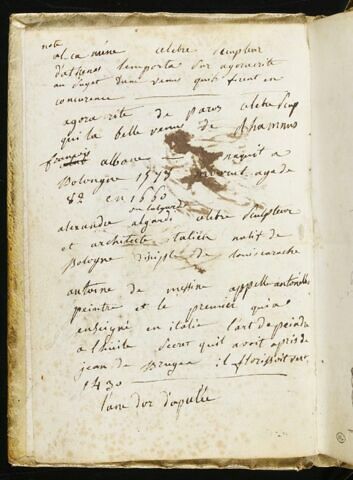 note
al ca mène celebre sculpteur
d'athenes l'emporta sur agoracrite
au sujet d'une venus qu'ils firent en
concurence
agora crite de Paros celebre sculp
qui la belle venus de Rhamnus
françois albane naquit a
Bologne 1578 mourut agé de
82 en 1660
alexandre algarde ou l'algarde celebre sculpteur
et architecte italien natif de
Bologne disiple de louis carache
antoine de messine appellé antonello
peintre et le premier qui a
enseigné en italie l'art de peindre
a l'huile secret qu'il avoit apris de
jean de Bruges il florissoit vers
1430
l'ane d'or d'apulée